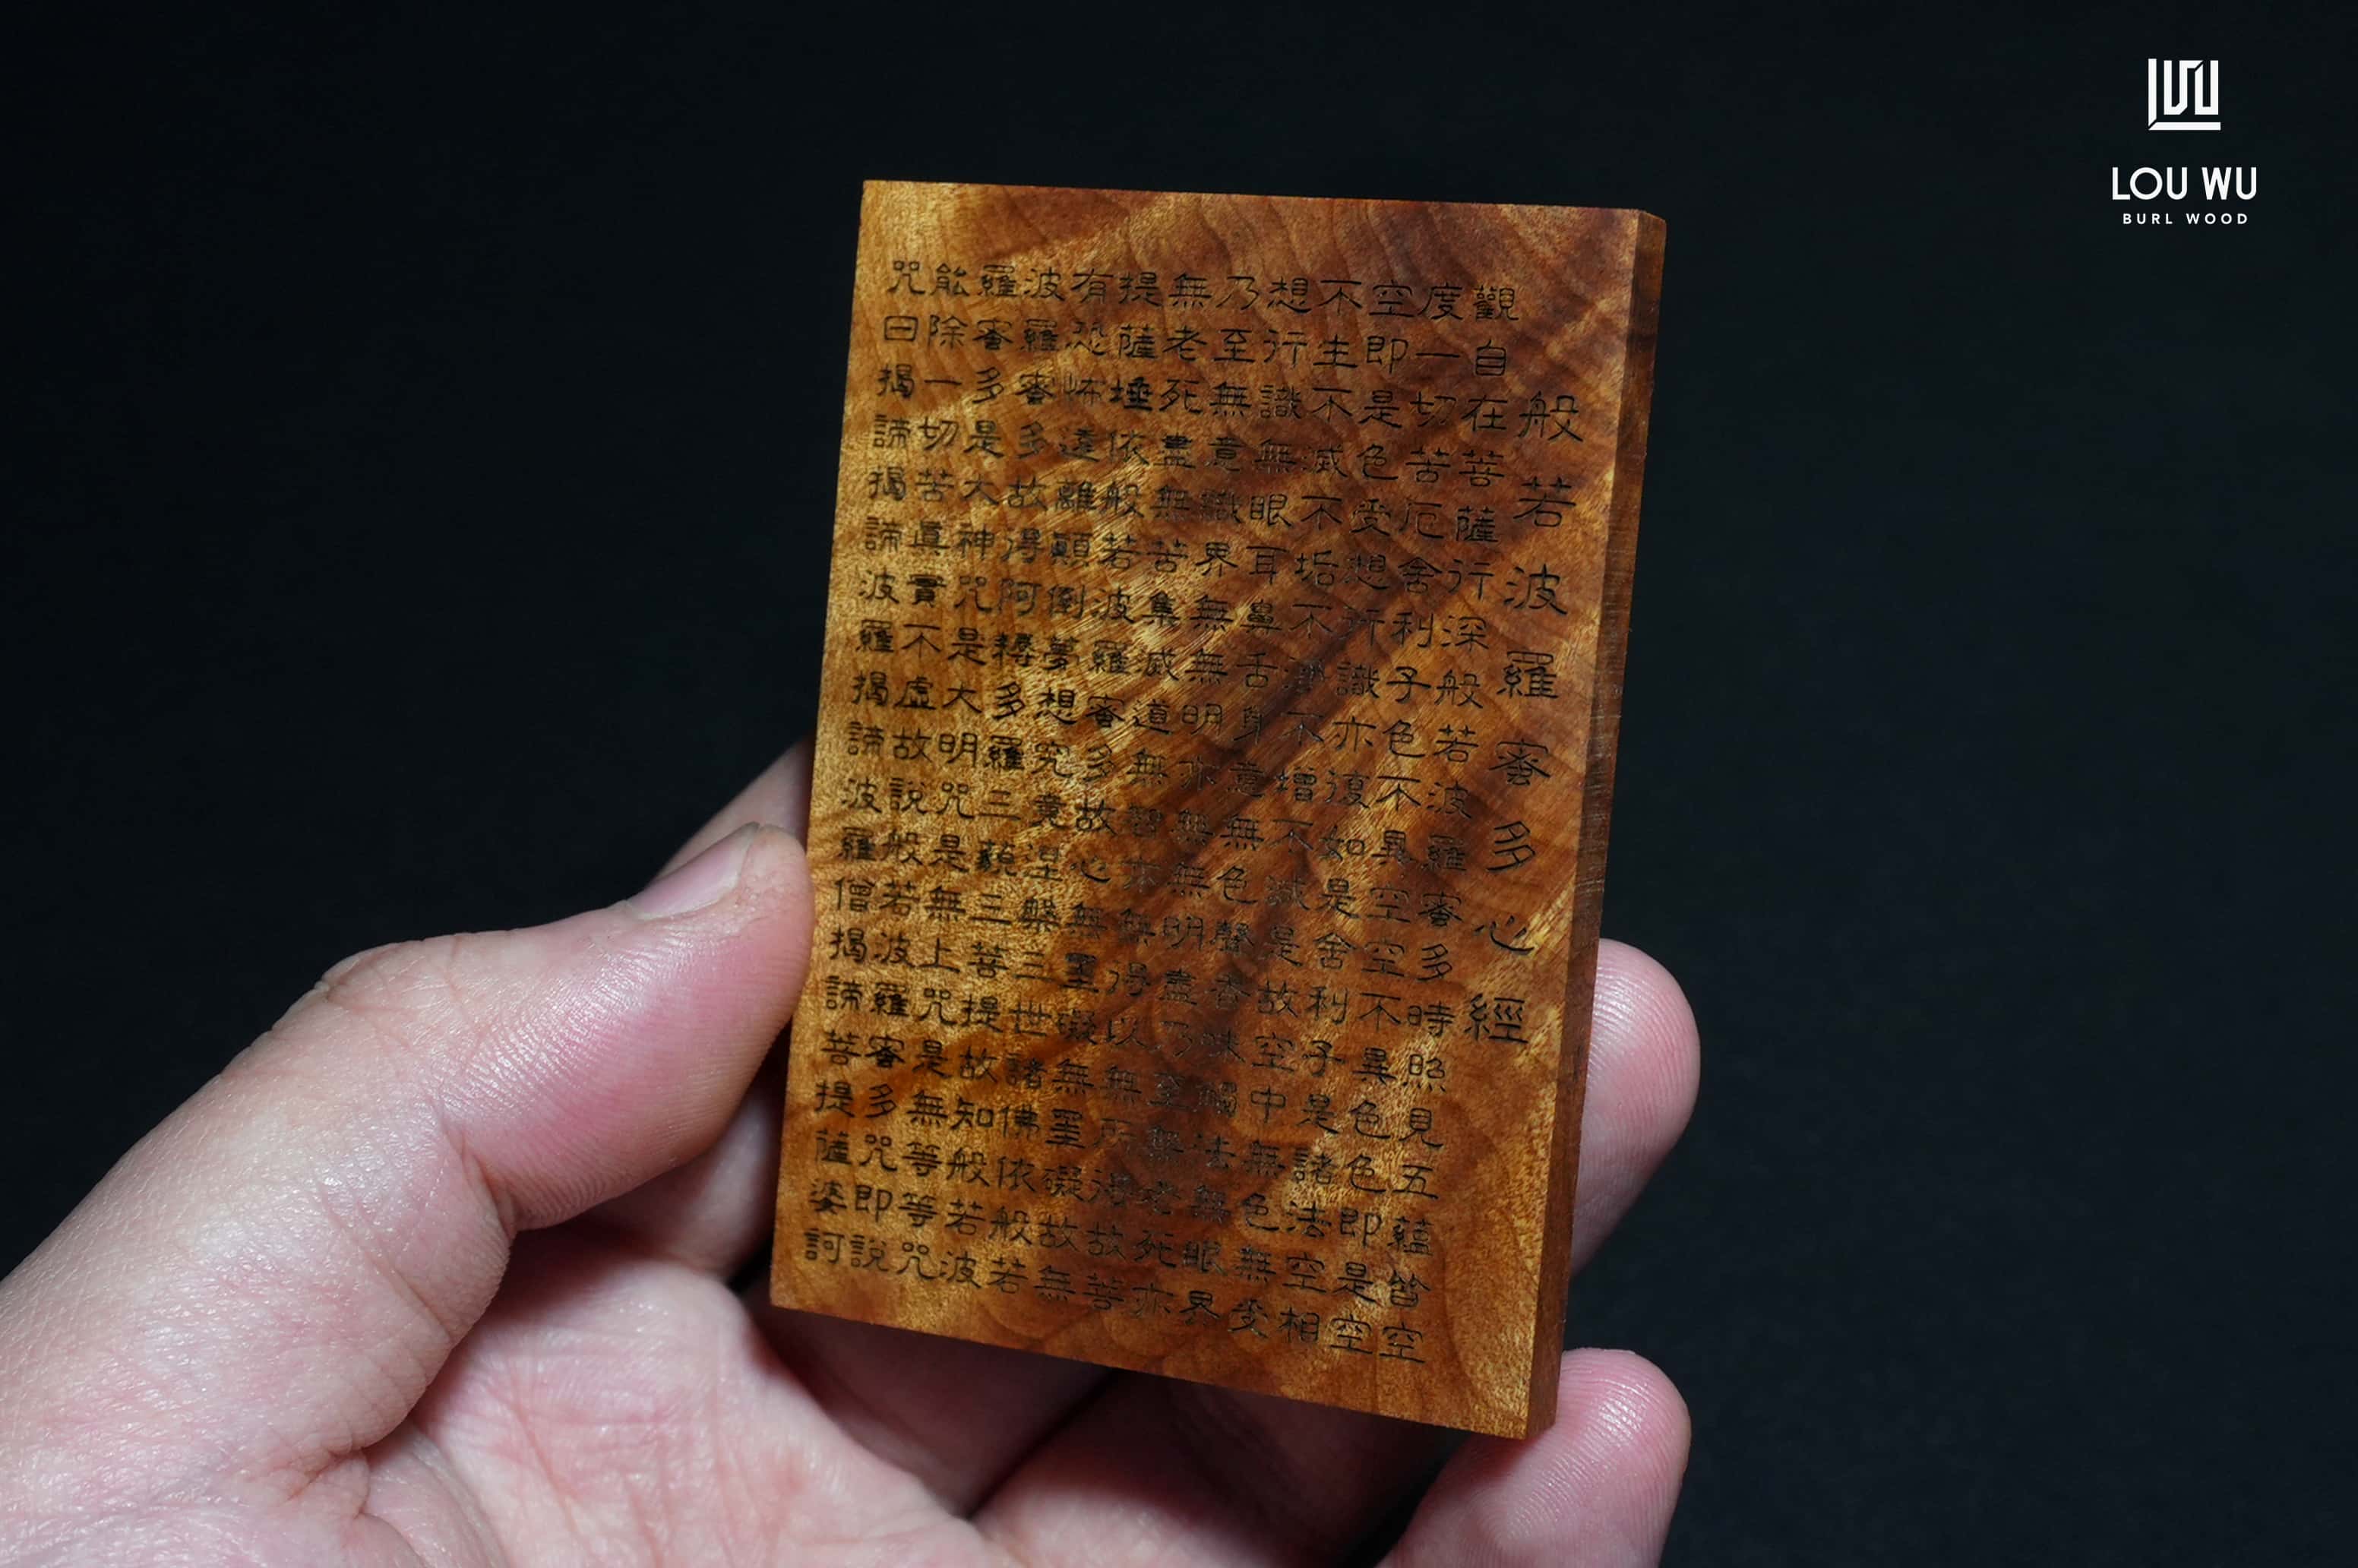 般若波羅蜜多心經
觀自在菩薩行深般若波羅蜜多時照見五蘊皆空
度一切苦厄舍利子色不異空空不異色色即是空
空即是色受想行識亦復如是舍利子是諸法空相
不生不滅不垢不淨不增不減是故空中無色無受
想行識無眼耳鼻舌身意無色聲香味觸法無眼界
乃至無意識界無無明亦無無明盡乃至無老死亦
無老死盡無苦集滅道無智亦無得以無所得故菩
提薩埵依般若波羅蜜多故心無罣礙無罣礙故無
有恐怖遠離顛倒夢想究竟涅槃三世諸佛依般若
波羅蜜多故得阿耨多羅三藐三菩提故知般若波
羅蜜多是大神咒是大明咒是無上咒是無等等咒
能除一切苦眞實不虛故說般若波羅蜜多咒即說
咒曰揭諦揭諦波羅揭諦波羅僧揭諦菩提薩婆訶
LOU WU
BURL WOOD